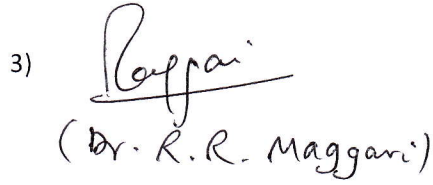 3)
(Dr. R.R. Maggari)